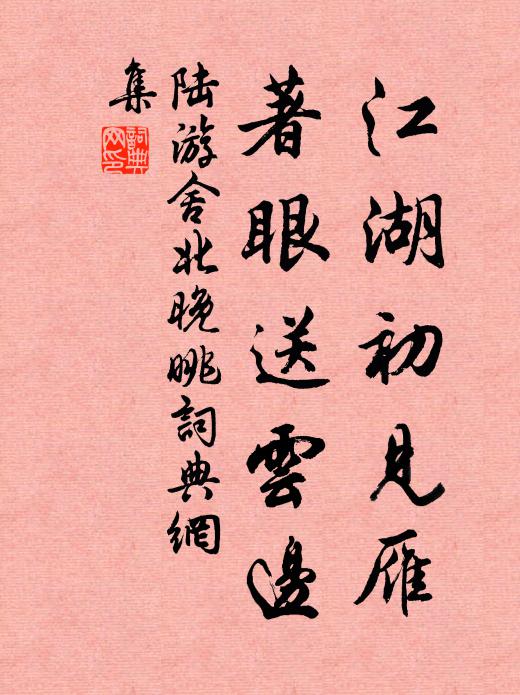 江湖初見雁
著眼送雲邊
陸游舍北晚眺詞典網
集
詞典
網印